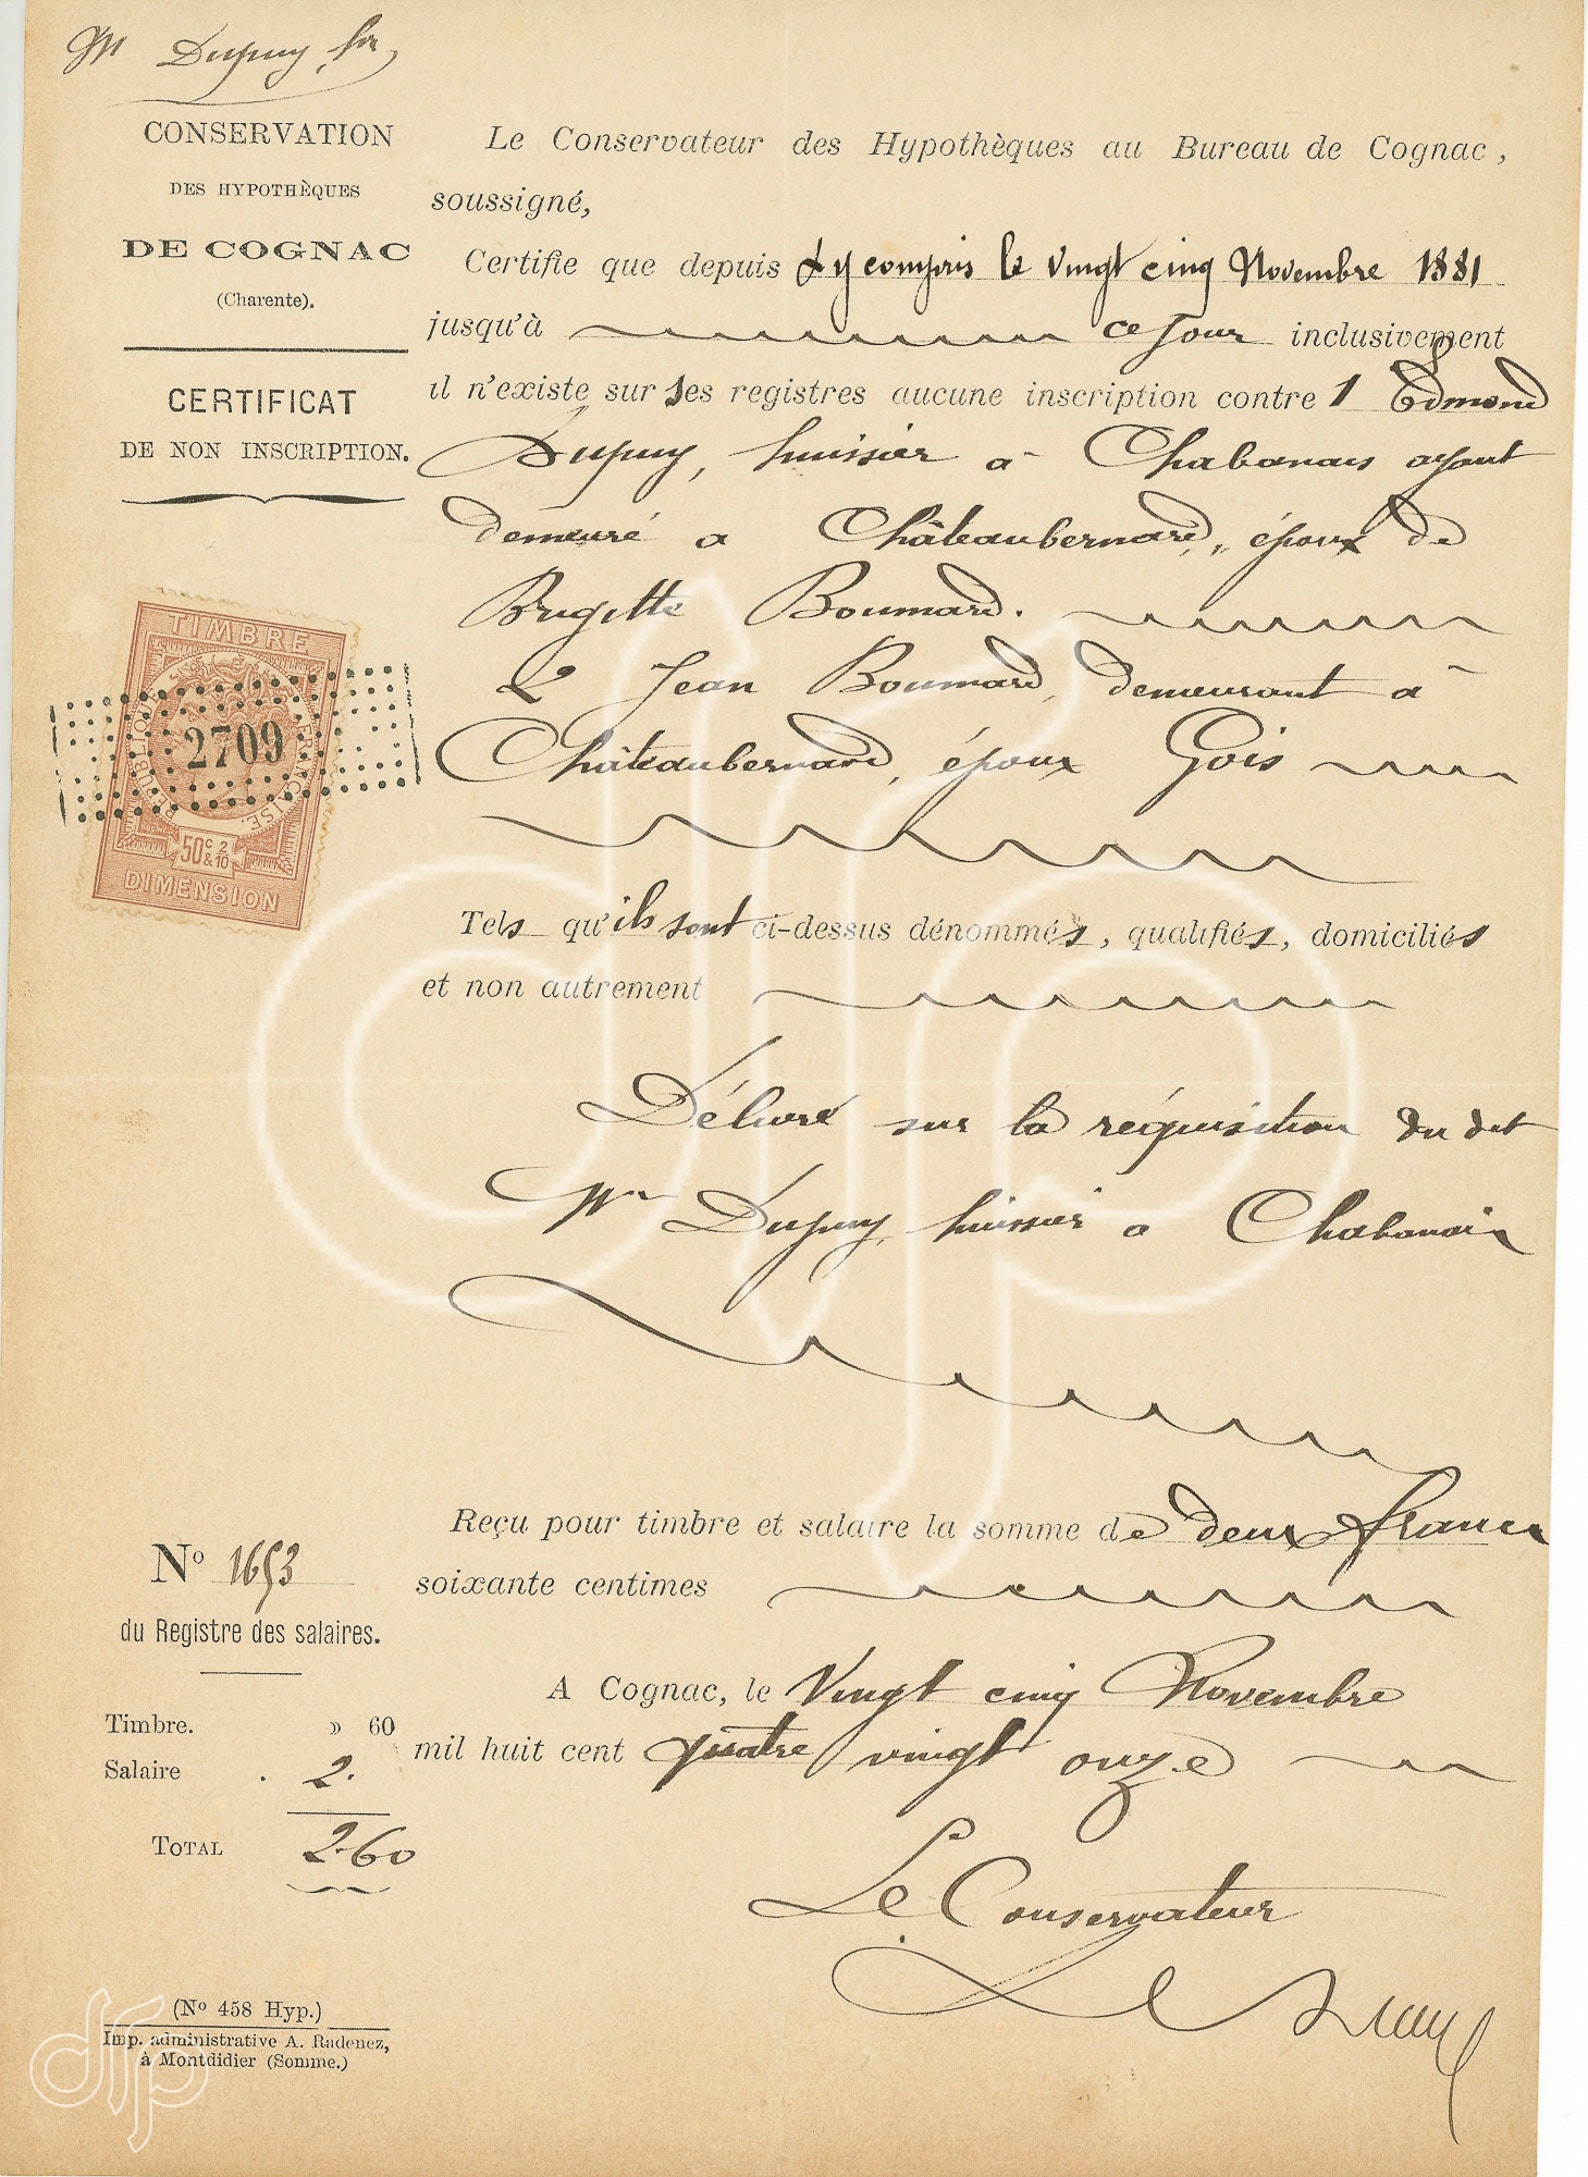 Mr Dupuy, hor
CONSERVATION
DES HYPOTHÈQUES
DE COGNAC
(Charente).
CERTIFICAT
DE NON INSCRIPTION.
Le Conservateur des Hypothèques au Bureau de Cognac,
soussigné,
Certifie que depuis & y compris le Vingt cinq Novembre 1881
jusqu'à ce jour inclusivement
il n'existe sur ses registres aucune inscription contre 1 Edmond
Dupuy, huissier à Chabanais ayant
demeuré a Châteaubernard, époux de
Brigitte Boumard.
2 Jean Boumard, demeurant à
Châteaubernard, époux Gois
TIMBRE
RÉPUBLIQUE FRANÇAISE.
2709
50c & 2/10
DIMENSION
Tels qu'ils sont ci-dessus dénommés, qualifiés, domiciliés
et non autrement
Délivré sur la réquisition du dit
Mr Dupuy, huissier a Chabanais
Reçu pour timbre et salaire la somme de deux francs
soixante centimes
No 1653
du Registre des salaires.
Timbre. » 60
Salaire . 2.
TOTAL 2.60
A Cognac, le Vingt cinq Novembre
mil huit cent quatre vingt onze
Le Conservateur
(No 458 Hyp.)
Imp. administrative A. Radenez,
à Montdidier (Somme.)
drp